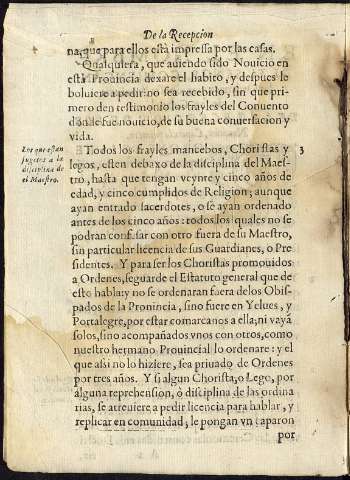 De la Recepcion
na, que para ellos està impressa por las casas.
Qualquiera, que auiendo sido Nouicio en
está Prouincia dexare el habito, y despues le
boluiere a pedir: no sea recebido, sin que pri-
mero den testimonio los frayles del Conuento
dōn de fue nouicio, de su buena conuersacion y
vida.
Todos los frayles mancebos, Choristas y
legos, esten debaxo de la disciplina del Maes-
tro, hasta que tengan veynte y cinco años de
edad, y cinco cumplidos de Religion; aunque
ayan entrado sacerdotes, o se ayan ordenado
antes de los cinco años: todos los quales no se
podran confessar con otro fuera de su Maestro,
sin particular licencia de sus Guardianes, o Pre-
sidentes. Y para ser los Choristas promouidos
a Ordenes, se guarde el Estatuto general que de
esto habla: y no se ordenaran fuera de los Obis-
pados de la Prouincia, sino fuere en Yelues, y
Portalegre, por estar comarcanos a ella; ni vayā
solos, sino acompañados vnos con otros, como
nuestro hermano Prouincial lo ordenare: y el
que assi no lo hiziere, sea priuado de Ordenes
por tres años. Y si algun Chorista, o Lego, por
alguna reprehension, ò disciplina de las ordina
rias, se atreuiere a pedir licencia para hablar, y
replicar en comunidad, le pongan vn caparon
por
Los que estan
sugetos a la
disciplina de
el Maestro.
3